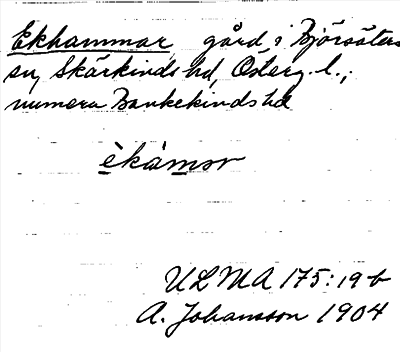 Ekhammar, gård i Björsäters
sn, Skärkinds hd, Österg. l.;
numera Bankekinds hd
èkàmar
ULMA 175:19 b
A. Johansson 1904